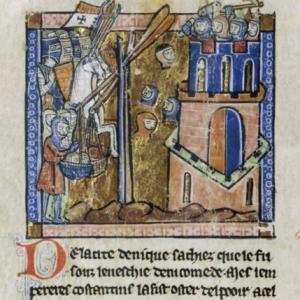 DElacite denique sachiez que le fu
souz leueschie denicomede. Mes lem
pereres costantins la fist oster delpooir acel